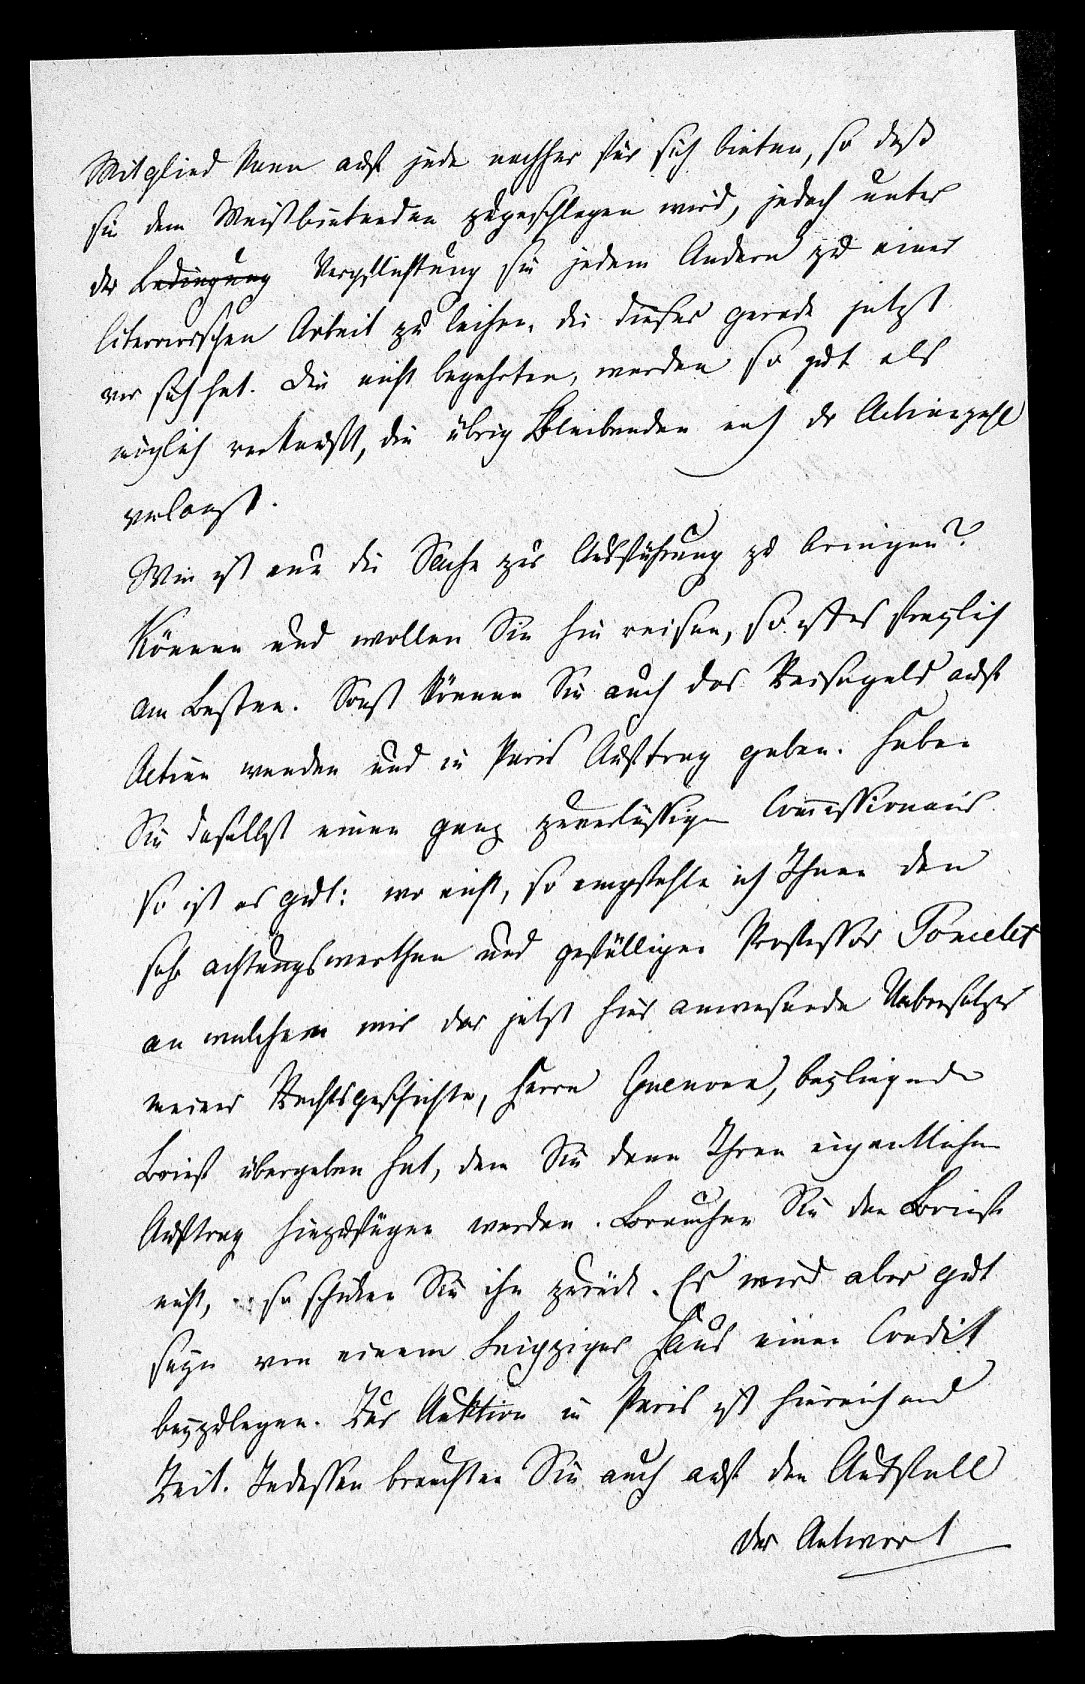 Mitglied kann auf jede nachher für sich bieten, so daß
sie dem Meistbietenden zugeschlagen wird, jedoch unter
der Bedingung Verpflichtung sie jedem Andern zu einer
literarischen Arbeit zu leihen, die dieser gerade jetzt
vor sich hat. Die nicht begehrten, werden so gut als
möglich verkauft, die übrig Bleibenden nach der Actienzahl
verloost.
Wie ist nun die Sache zur Ausführung zu bringen?
Können und wollen Sie hin reisen, so ist es freylich
am Besten. Sonst können Sie auch das Reisegeld auf
Actien wenden und in Paris Auftrag geben. Haben
Sie daselbst einen ganz zuverlässigen Commissionair
so ist es gut: wo nicht, so empfehle ich Ihnen den
sehr achtungswerthen und gefälligen Professor Poncelet
an welchem mir der jetzt hier anwesende Uebersetzer
meiner Rechtsgeschichte, Herr Guenoux, beyliegende
Brief übergeben hat, dem Sie dann Ihren eigentlichen
Auftrag hinzufügen werden. Brauchen Sie den Brief
nicht, so schicken Sie ihn zurück. Es wird aber gut
seyn von einem Leipziger Haus einen Credit
beyzulegen. Zur Auktion in Paris ist hinreichend
Zeit. Indessen brauchten Sie auch auf den Ausfall
der Antwort